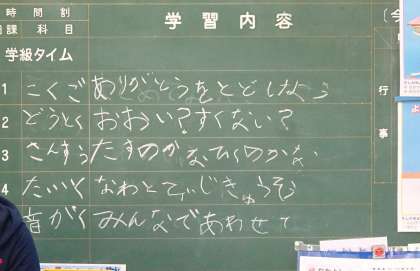 時間割 学習内容
日課 科目
学級タイム
1 こくご ありがとうをとどけよう
2 どうとく おおい?すくない?
3 さんすう たすのかな、ひくのかな
4 たいいく なわとび
音がく みんなであわせて
行事